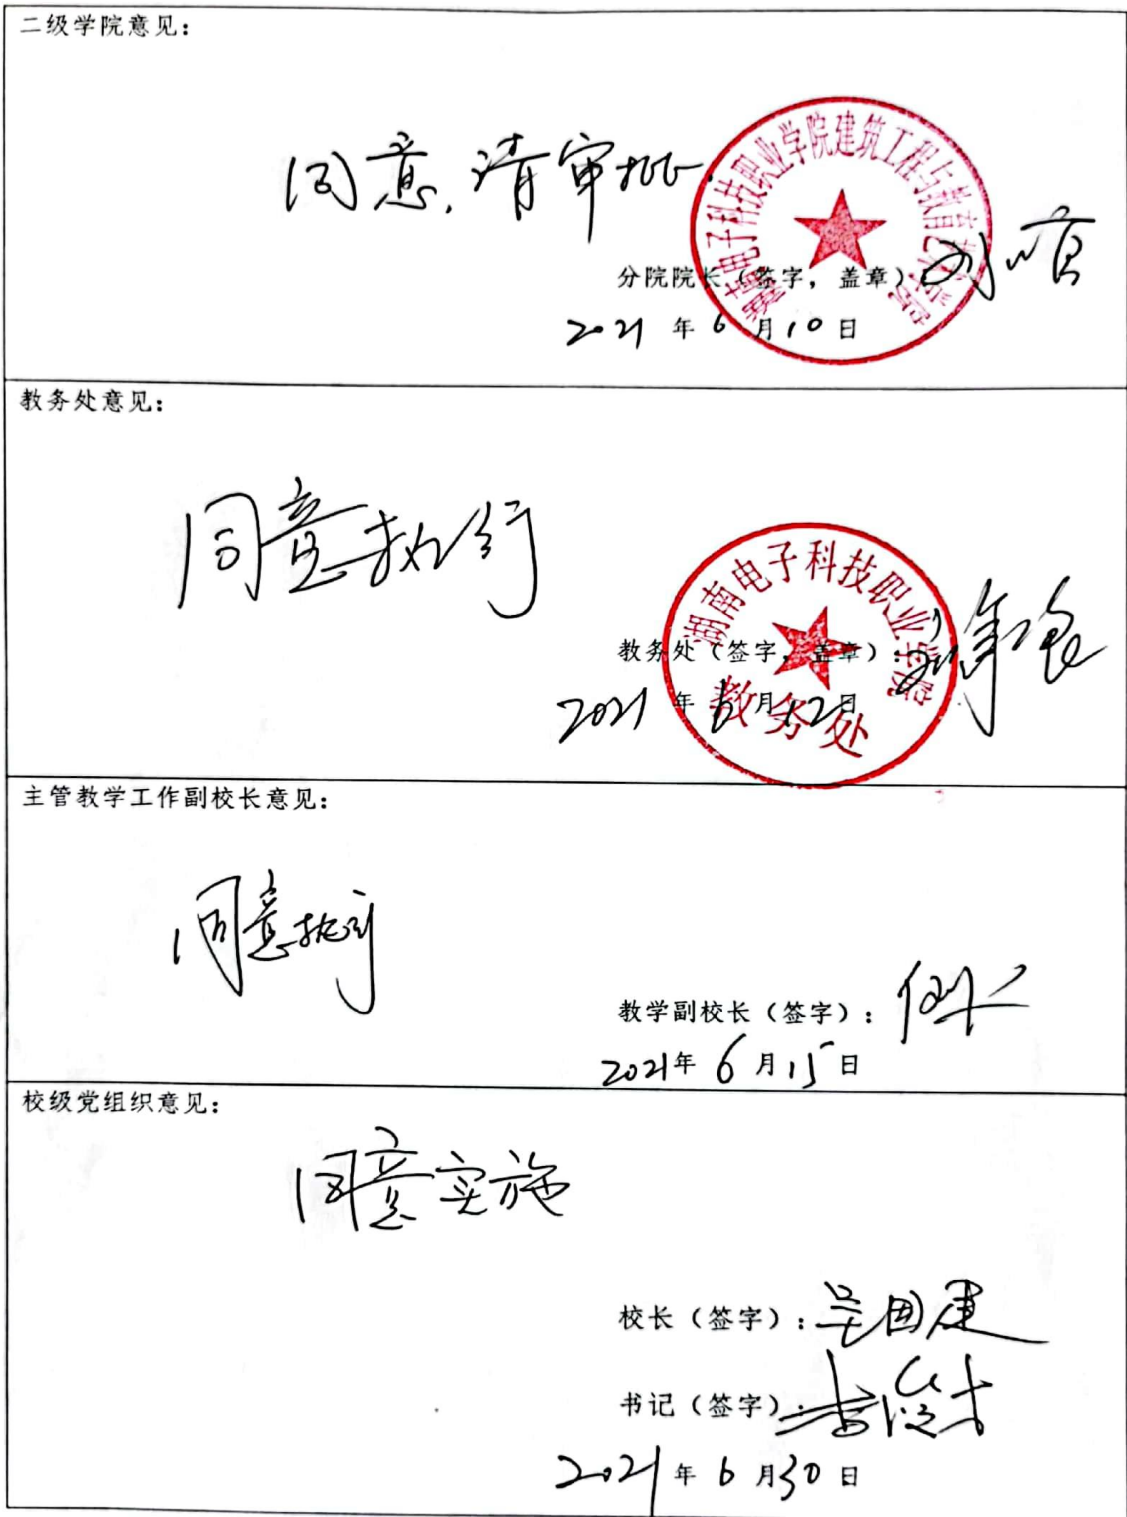 二级学院意见：
同意，请审批.
湖南电子科技职业学院建筑工程与教育艺术学院
分院院长（签字，盖章）
2021 年 6 月 10 日
教务处意见：
同意执行
湖南电子科技职业学院
教务处（签字，盖章）：
2021 年 6 月 12 日
教务处
主管教学工作副校长意见：
同意执行
教学副校长（签字）：
2021年 6 月 15 日
校级党组织意见：
同意实施
校长（签字）：
书记（签字）：
2021 年 6 月 30 日